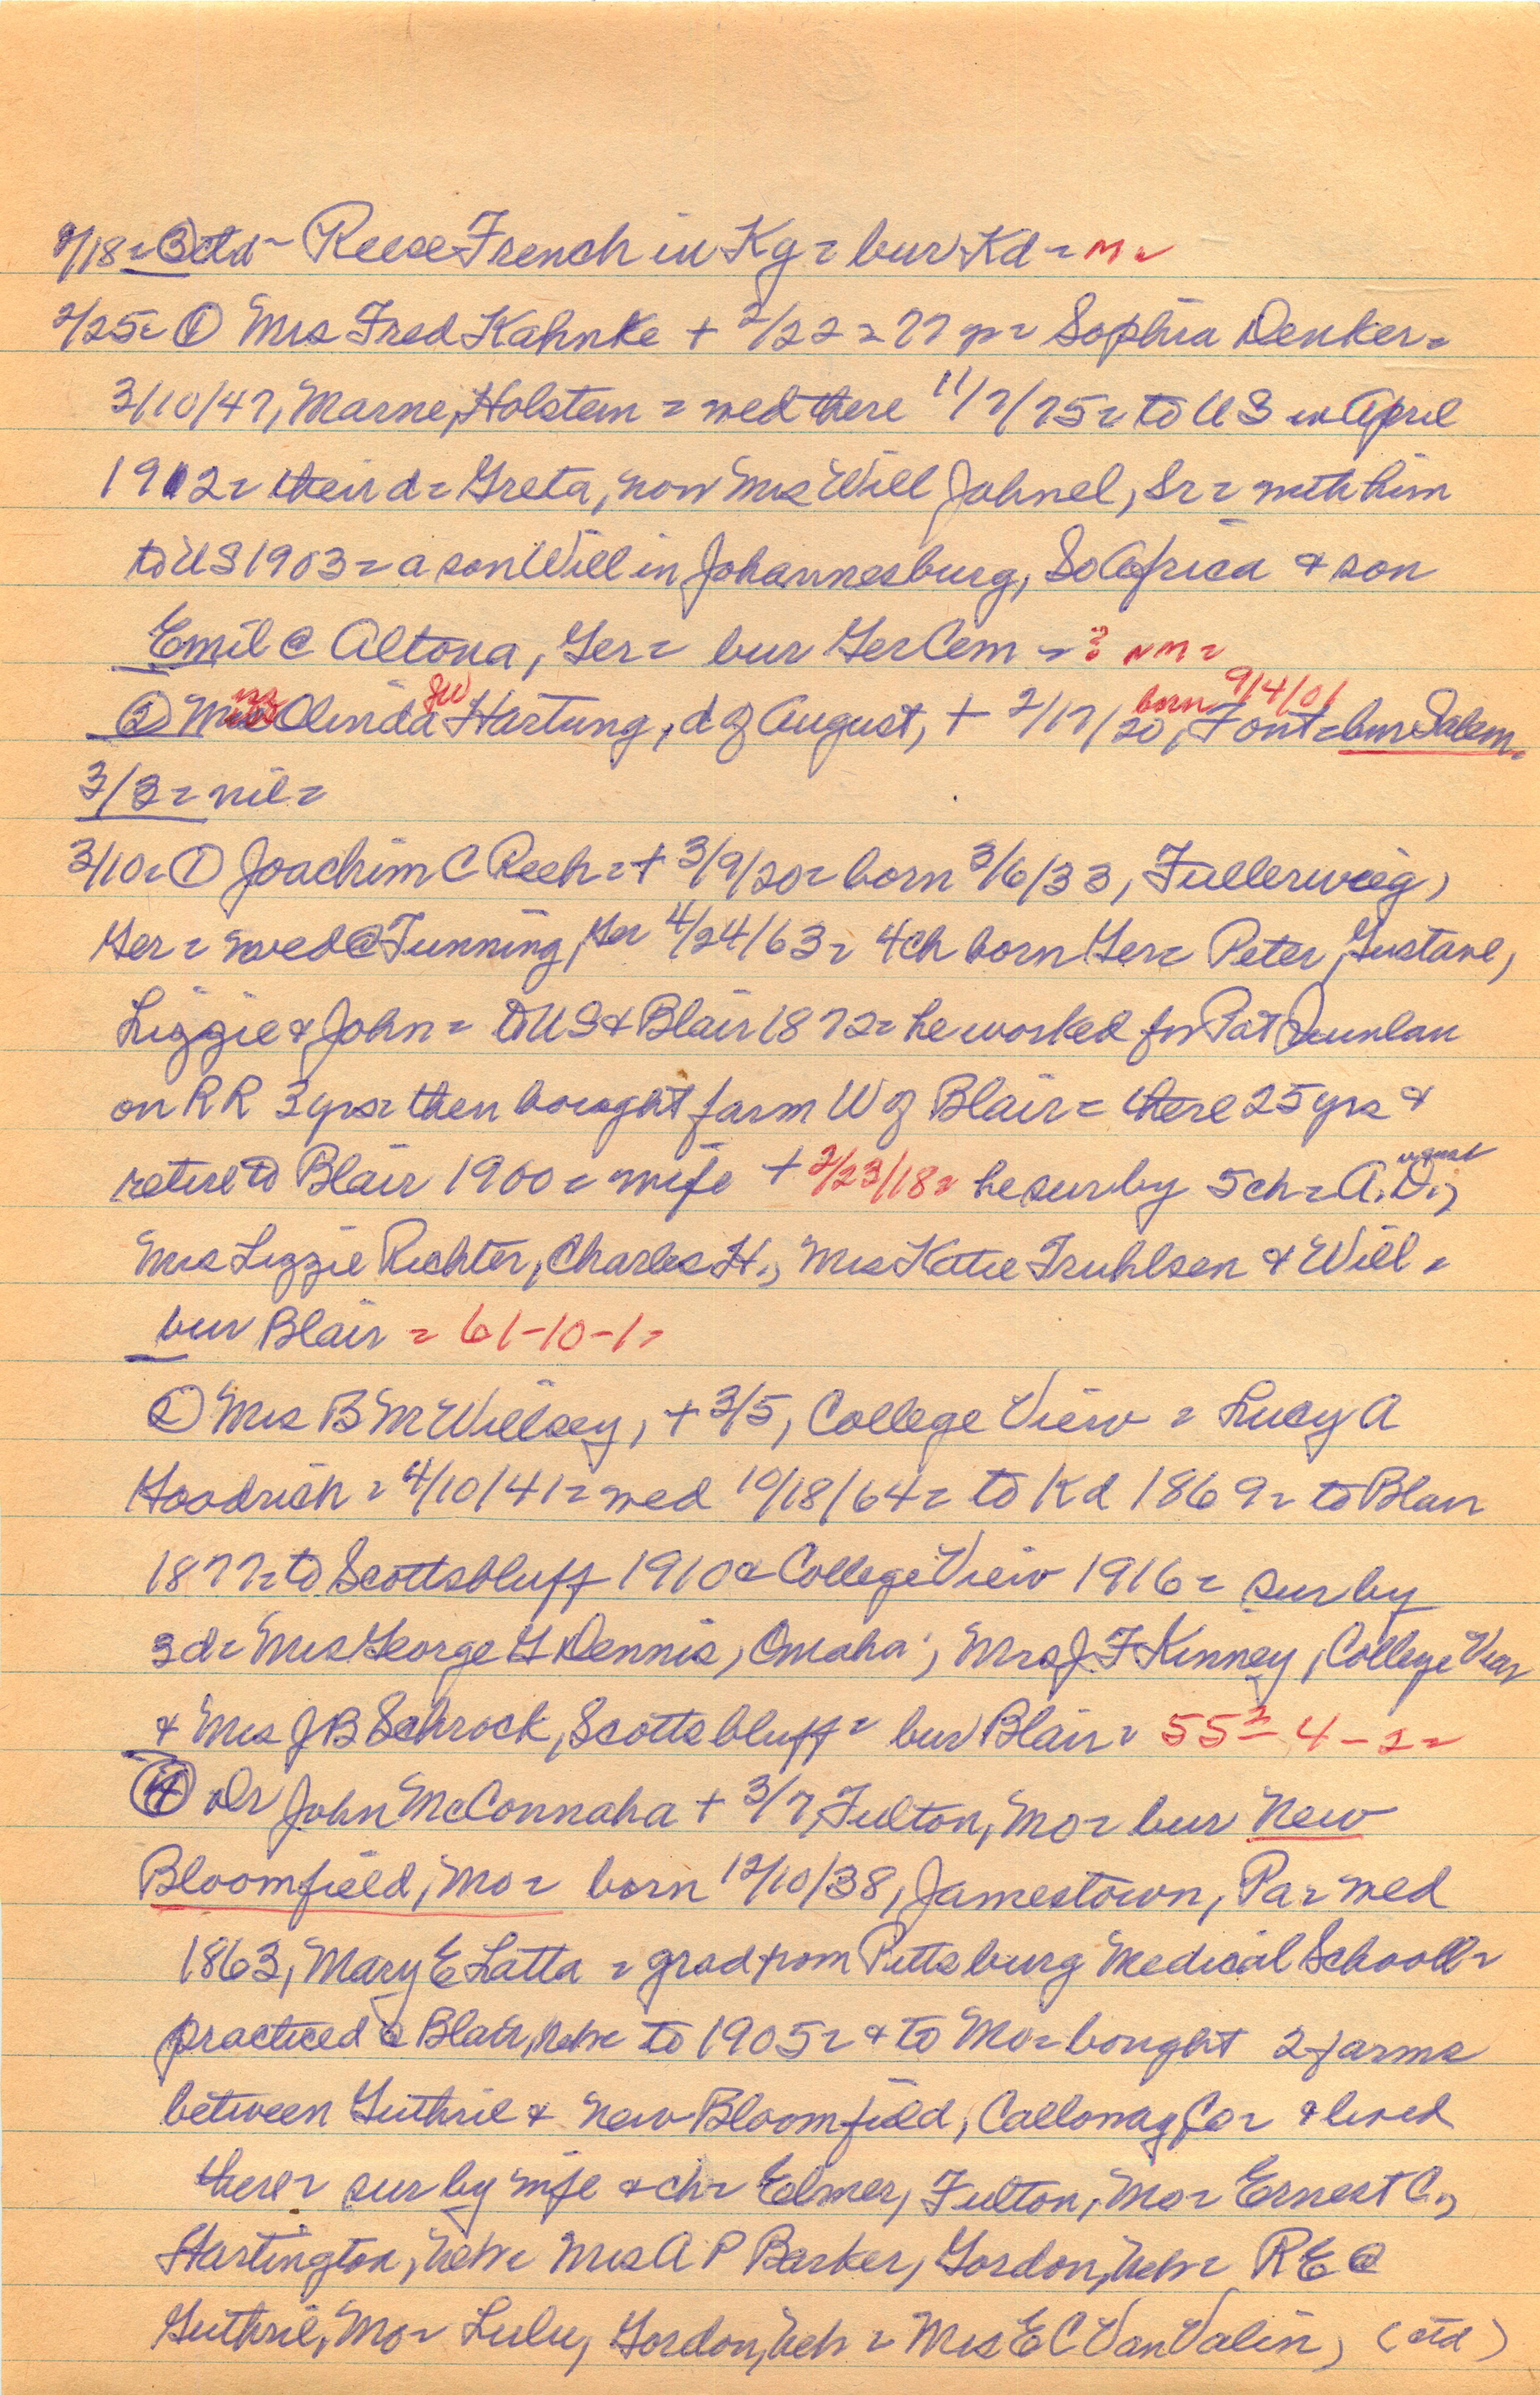 2/18 = ③ ctd - Reese French in Kg = bur Kd = M =
2/25 = ① Mrs Fred Kahnke + 2/22 = 77 yr = Sophia Denker =
3/10/47, Marne, Holstein = wed there 11/7/75 = to US in April
1912 = their d = Greta, now Mrs Will Jahnel, Sr = with him
to US 1903 = a son Will in Johannesburg, So Africa & son
Emil @ Altona, Ger = bur Ger Cem = ? NM =
② Miss Olinda Hartung, d of August, + 2/17/20, born 9/4/01 Font = bur Salem =
3/3 = nil =
3/10 = ① Joachim C Reeh = + 3/9/20 = born 3/6/33, Fullerwieg,
Ger = wed @ Tunning, Ger 4/24/63 = 4 ch born Ger = Peter, Gustave,
Lizzie & John = to US & Blair 1872 = he worked for Pat
on RR 3 yrs = then bought farm W of Blair = there 25 yrs &
retire to Blair 1900 = wife + 2/23/18 = he sur by 5 ch = August A.D.,
Mrs Lizzie Richter, Charles H., Mrs Katie Truhlsen & Will =
bur Blair = 61-10-1 =
② Mrs B M Willsey, + 3/5, College View = Lucy A
Goodrich = 4/10/41 = wed 10/18/64 = to Kd 1869 = to Blair
1877 = to Scottsbluff 1910 & College View 1916 = sur by
3 d = Mrs George G Dennis, Omaha; Mrs J. F Kinney, College View
& Mrs J B Schrock, Scottsbluff = bur Blair = 55-4-2 =
④ Dr John McConnaha + 3/7, Fulton, Mo = bur New
Bloomfield, Mo = born 12/10/38, Jamestown, Pa = wed
1863, Mary E Latta = grad from Pittsburg Medical School =
practiced @ Blair, Nebr to 1905 = & to Mo = bought 2 farms
between Guthrie & New Bloomfield, Calloway Co = & lived
there = sur by wife & ch = Elmer, Fulton, Mo = Ernest C.,
Hartington, Nebr = Mrs A P Barker, Gordon, Nebr = R E @
Guthrie, Mo = Lulu, Gordon, Nebr = Mrs E C Van Valin, (ctd)